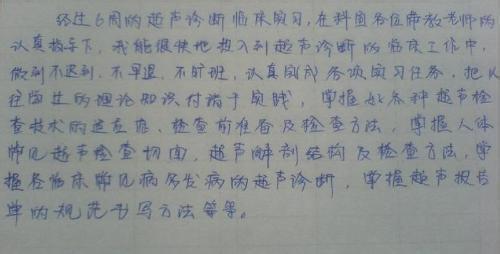 经过6周的超声诊断临床实习,在科室各位带教老师的
认真指导下,我能很快地投入到超声诊断的临床工作中,
做到不迟到,不早退,不旷班,认真完成各项实习任务,把以
往所学的理论知识付诸于实践,掌握好各种超声检
查技术的适应症、检查前准备及检查方法,掌握人体
常见超声检查切面,超声解剖结构及检查方法,掌
握各临床常见病多发病的超声诊断,掌握超声报告
单的规范书写方法等等。